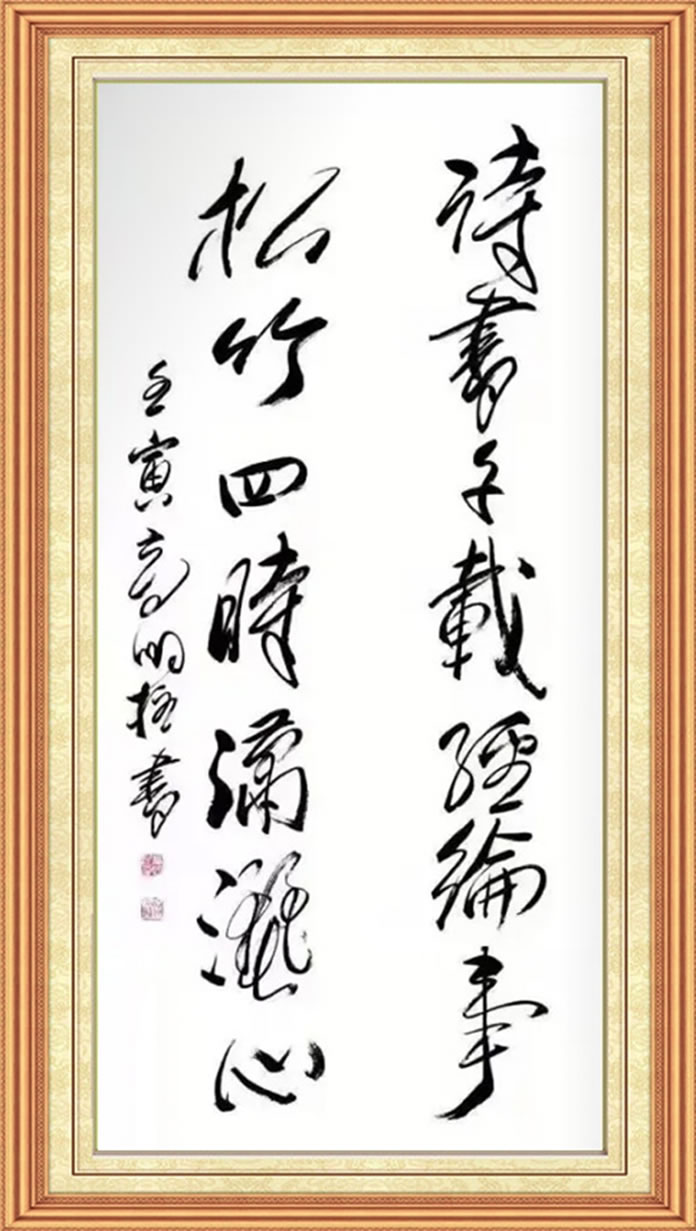 詩書千載經綸事
松竹四時瀟灑心
壬寅高明桂書